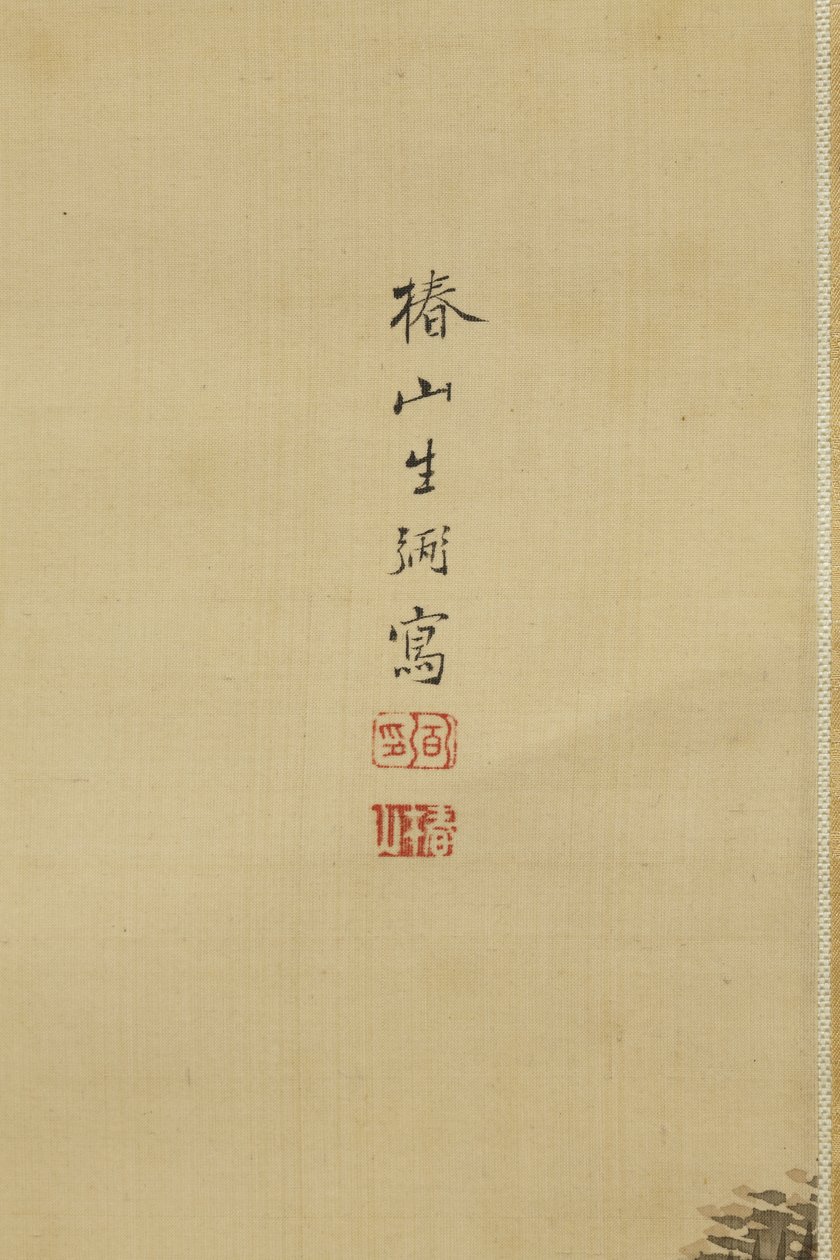 椿山生弼寫
椿山